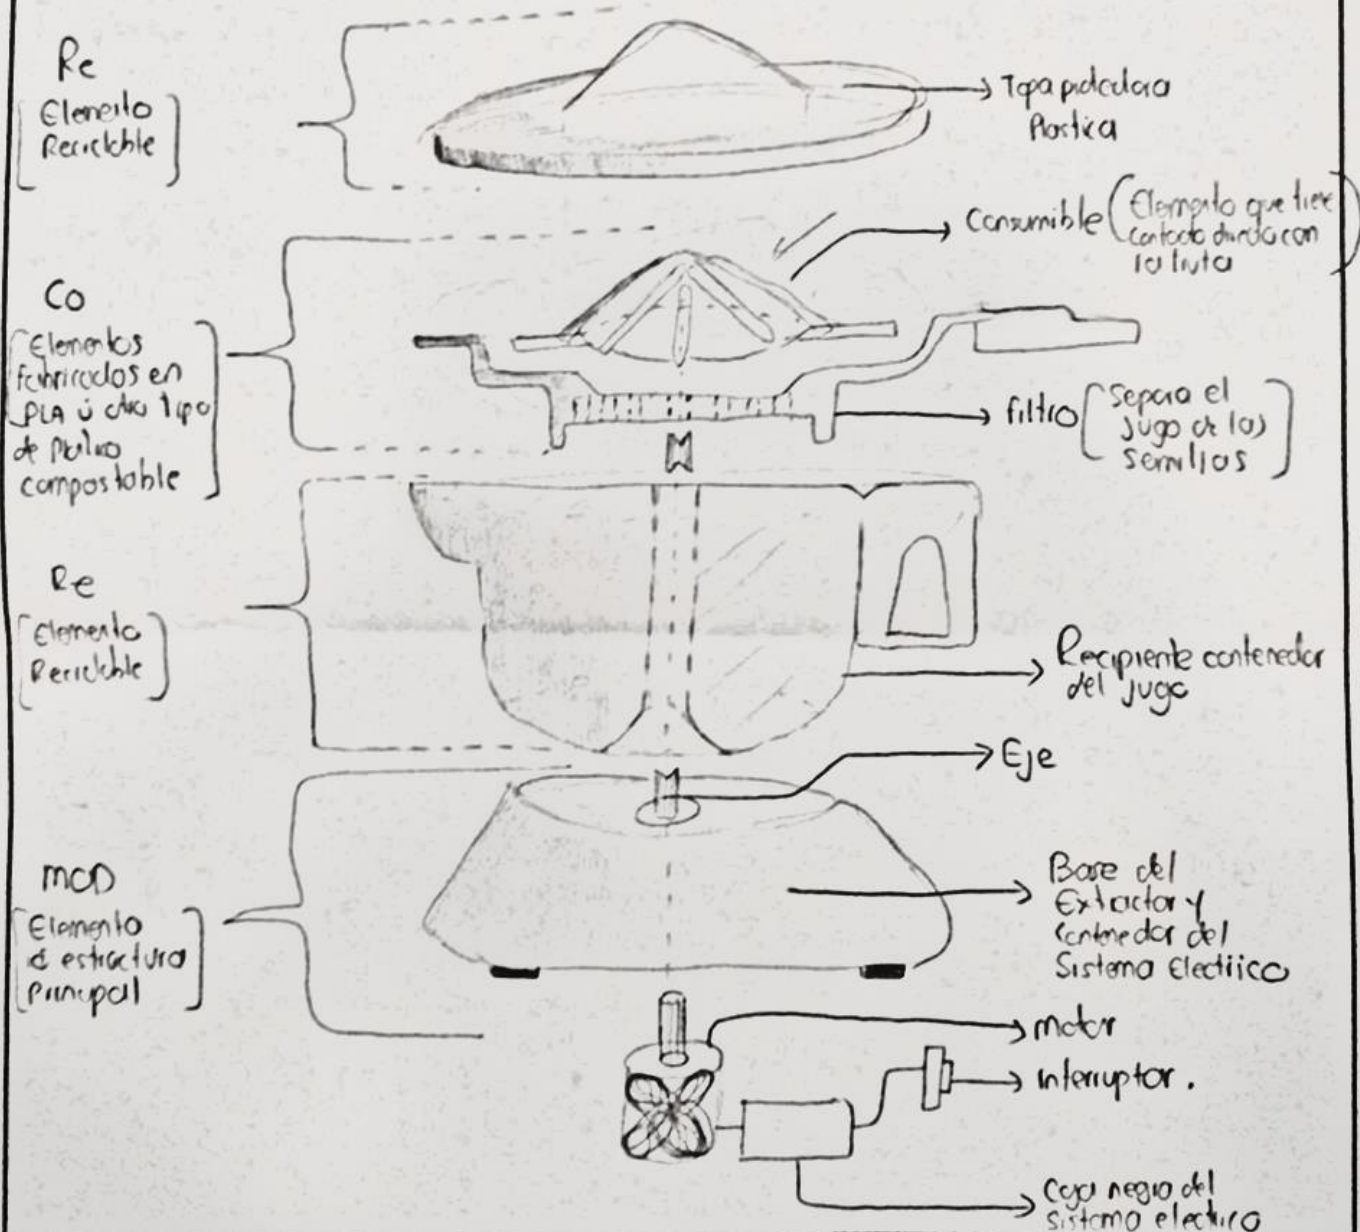 Re
[Elemento
Reciclable]
Tapa protectora
Plastica
Consumible (Elemento que tiene
contacto directo con
la fruta)
Co
[Elementos
fabricados en
PLA ú otro tipo
de
compostable]
filtro [Separa el
jugo de las
semillas]
Re
[Elemento
Reciclable]
Recipiente contenedor
del jugo
Eje
MCD
[Elemento
de estructura
Principal]
Base del
Extractor y
contenedor del
Sistema Electrico
motor
interruptor.
Caja negra del
sistema electrico